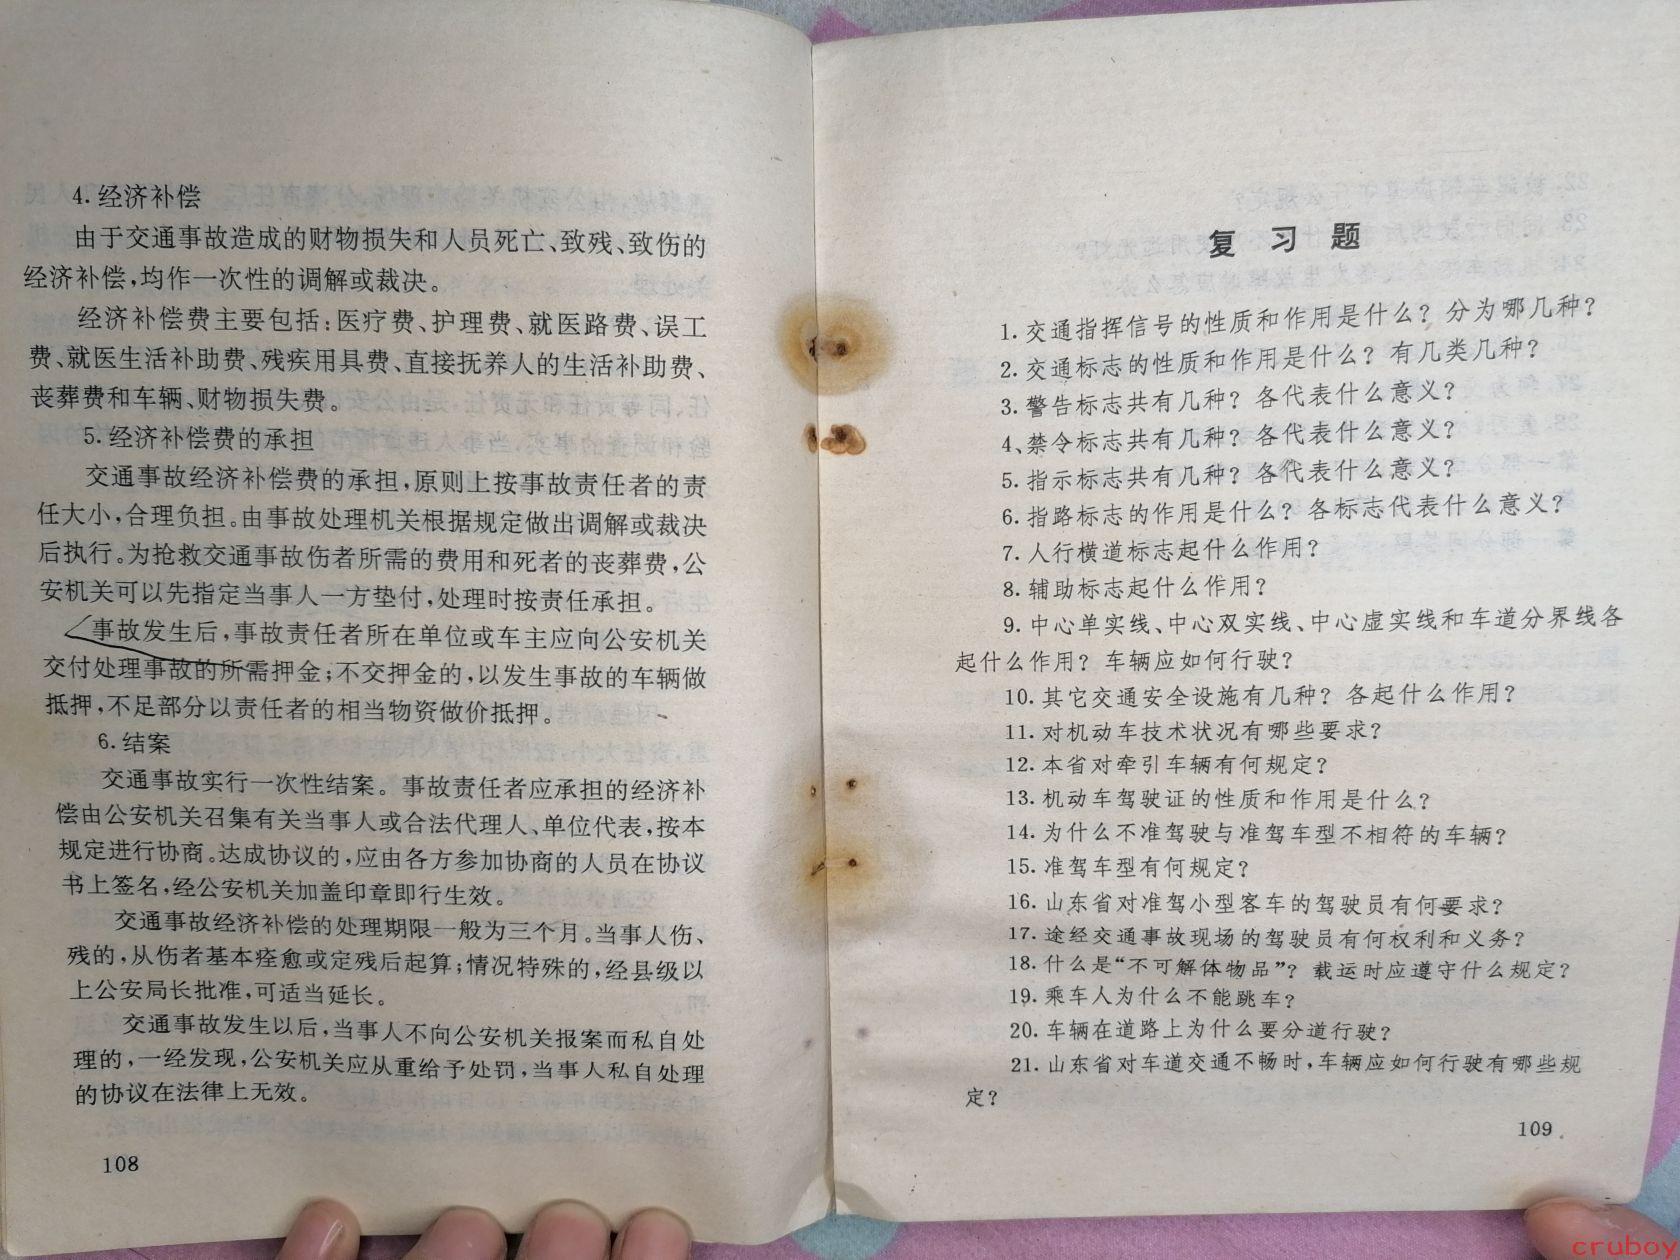 4. 经济补偿
由于交通事故造成的财物损失和人员死亡、致残、致伤的
经济补偿,均作一次性的调解或裁决。
经济补偿费主要包括:医疗费、护理费、就医路费、误工
费、就医生活补助费、残疾用具费、直接抚养人的生活补助费、
丧葬费和车辆、财物损失费。
5. 经济补偿费的承担
交通事故经济补偿费的承担,原则上按事故责任者的责
任大小,合理负担。由事故处理机关根据规定做出调解或裁决
后执行。为抢救交通事故伤者所需的费用和死者的丧葬费,公
安机关可以先指定当事人一方垫付,处理时按责任承担。
事故发生后,事故责任者所在单位或车主应向公安机关
交付处理事故的所需押金;不交押金的,以发生事故的车辆做
抵押,不足部分以责任者的相当物资做价抵押。
6. 结案
交通事故实行一次性结案。事故责任者应承担的经济补
偿由公安机关召集有关当事人或合法代理人、单位代表,按本
规定进行协商。达成协议的,应由各方参加协商的人员在协议
书上签名,经公安机关加盖印章即行生效。
交通事故经济补偿的处理期限一般为三个月。当事人伤、
残的,从伤者基本痊愈或定残后起算;情况特殊的,经县级以
上公安局长批准,可适当延长。
交通事故发生以后,当事人不向公安机关报案而私自处
理的,一经发现,公安机关应从重给予处罚,当事人私自处理
的协议在法律上无效。
108
复习题
1. 交通指挥信号的性质和作用是什么? 分为哪几种?
2. 交通标志的性质和作用是什么? 有几类几种?
3. 警告标志共有几种? 各代表什么意义?
4、禁令标志共有几种? 各代表什么意义?
5. 指示标志共有几种? 各代表什么意义?
6. 指路标志的作用是什么? 各标志代表什么意义?
7. 人行横道标志起什么作用?
8. 辅助标志起什么作用?
9. 中心单实线、中心双实线、中心虚实线和车道分界线各
起什么作用? 车辆应如何行驶?
10. 其它交通安全设施有几种? 各起什么作用?
11. 对机动车技术状况有哪些要求?
12. 本省对牵引车辆有何规定?
13. 机动车驾驶证的性质和作用是什么?
14. 为什么不准驾驶与准驾车型不相符的车辆?
15. 准驾车型有何规定?
16. 山东省对准驾小型客车的驾驶员有何要求?
17. 途经交通事故现场的驾驶员有何权利和义务?
18. 什么是“不可解体物品”? 载运时应遵守什么规定?
19. 乘车人为什么不能跳车?
20. 车辆在道路上为什么要分道行驶?
21. 山东省对车道交通不畅时,车辆应如何行驶有哪些规
定?
109
cruboy